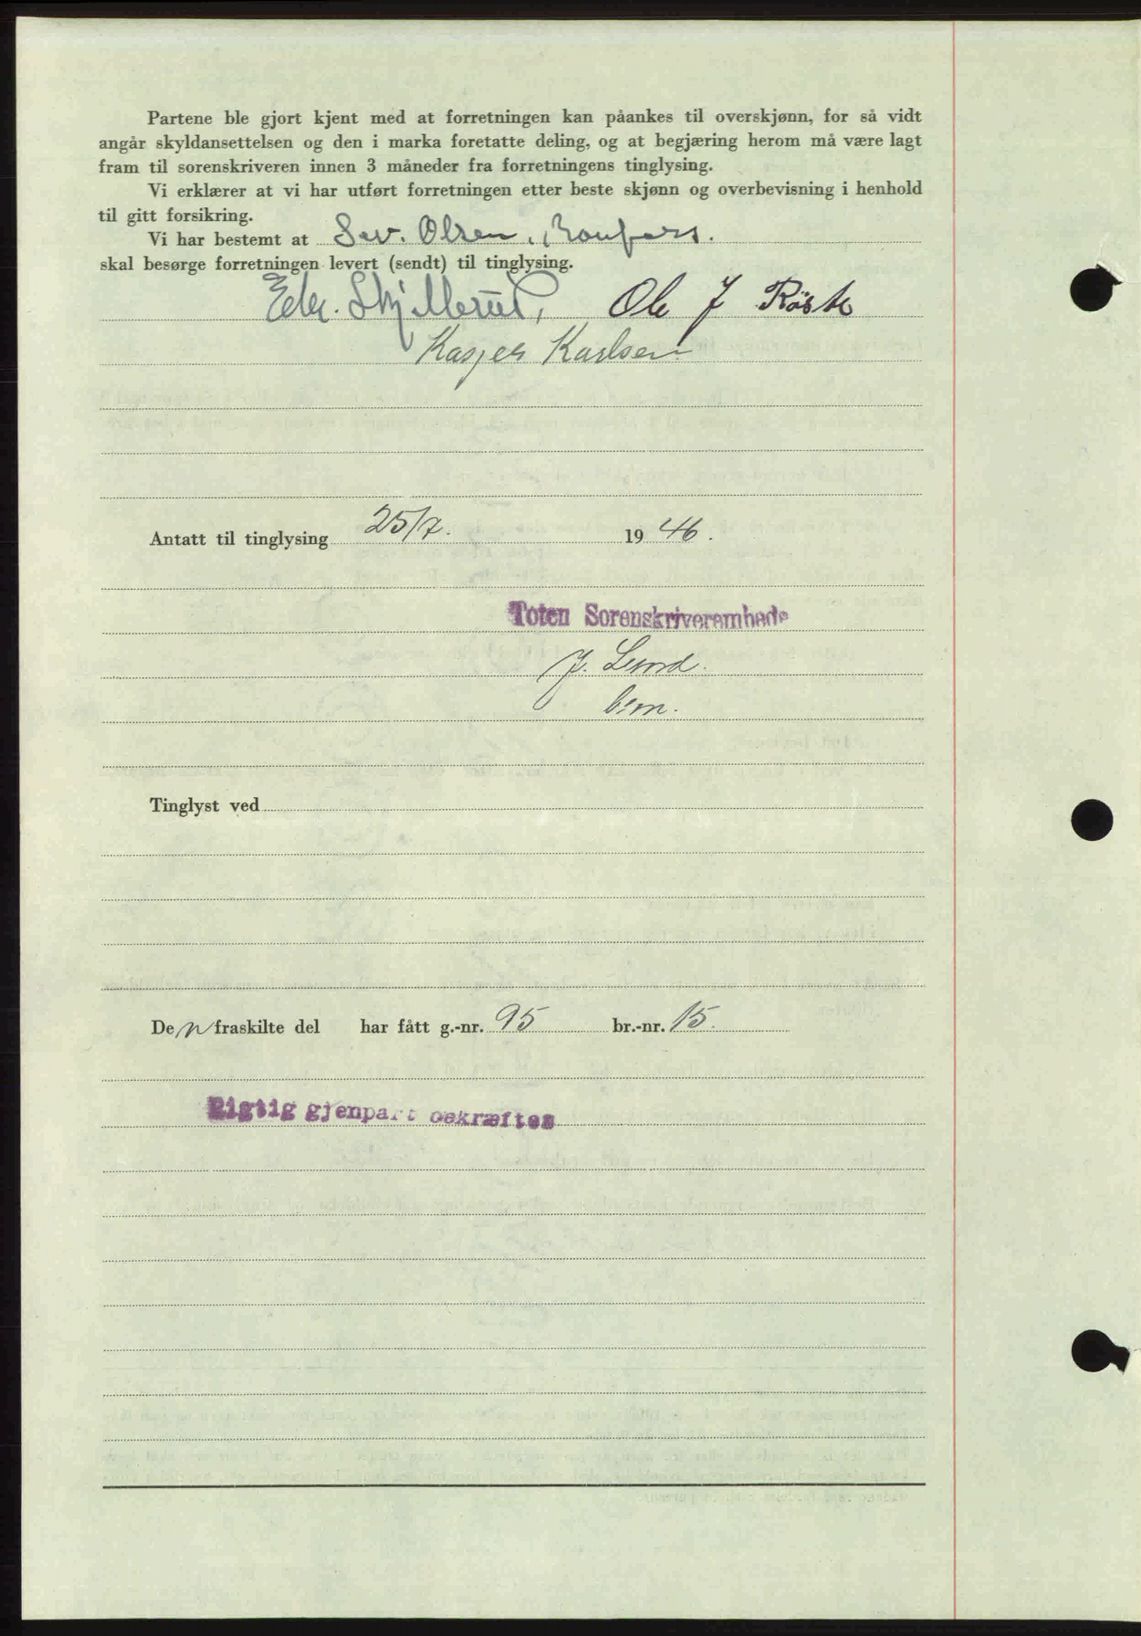 Partene ble gjort kjent med at forretningen kan påankes til overskjønn, for så vidt
angår skyldansettelsen og den i marka foretatte deling, og at begjæring herom må være lagt
fram til sorenskriveren innen 3 måneder fra forretningens tinglysing.
Vi erklærer at vi har utført forretningen etter beste skjønn og overbevisning i henhold
til gitt forsikring.
Vi har bestemt at Sev. Olsen,
skal besørge forretningen levert (sendt) til tinglysing.
Skjellerud, Ole J Røste
Kasper Karlsen
Antatt til tinglysing 25/7. 1946.
Toten Sorenskriverembede
J. Lund
bem.
Tinglyst ved
Den fraskilte del har fått g.-nr. 95 br.-nr. 15.
Rigtig gjenpart bekræftes